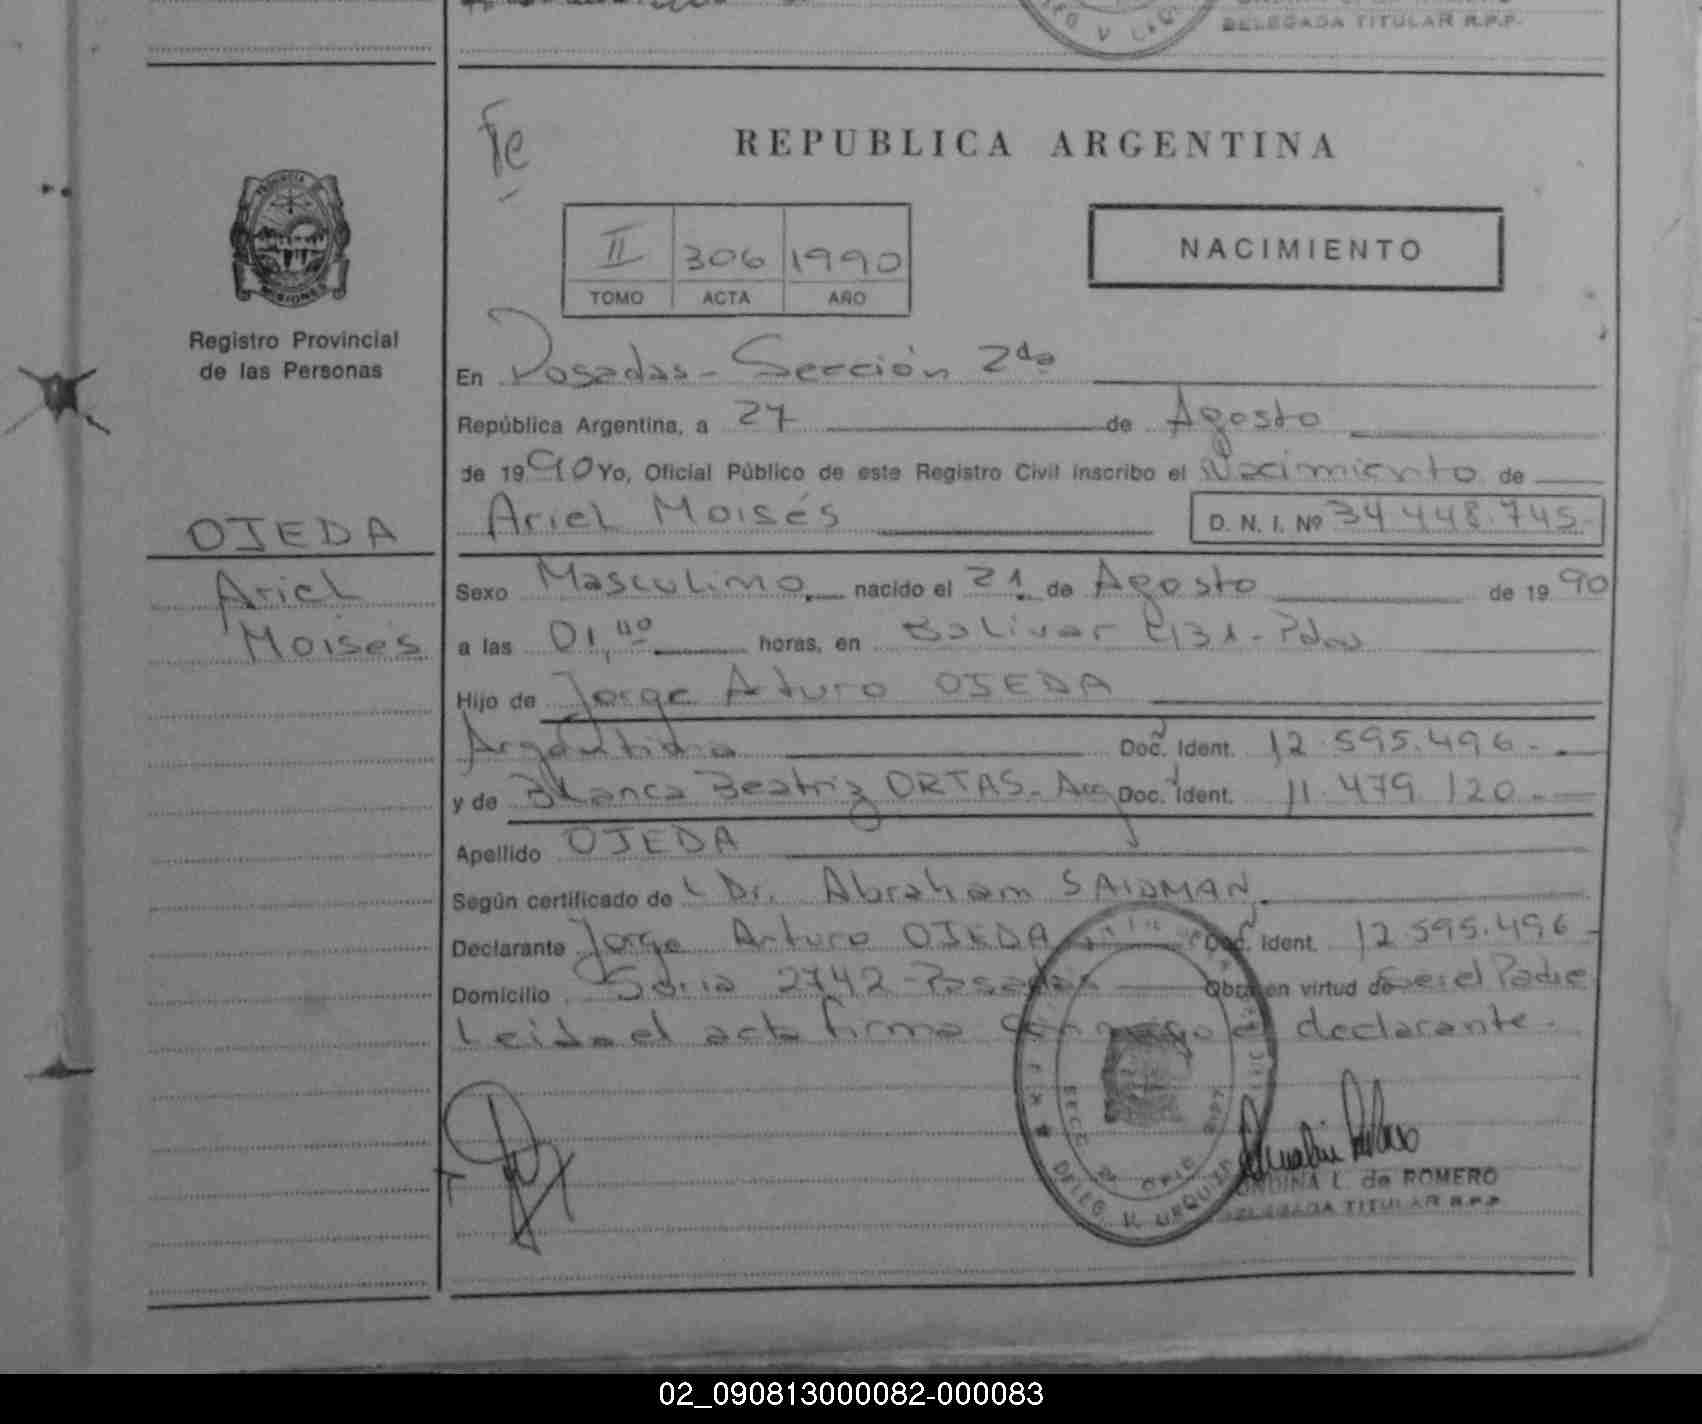 DELEGADA TITULAR R.P.P.
Fe
REPUBLICA ARGENTINA
PROVINCIA
MISIONES
II 306 1990
TOMO ACTA AÑO
NACIMIENTO
Registro Provincial
de las Personas
En Posadas - Sección 2da
República Argentina, a 27 de Agosto
de 1990 Yo, Oficial Público de este Registro Civil inscribo el Nacimiento de
Ariel Moisés D. N. I. Nº 34.448.745.
OJEDA
Ariel
Moisés
Sexo Masculino nacido el 21 de Agosto de 1990
a las 01, horas, en Bolívar
Hijo de Jorge Arturo OJEDA
Argentino Doc. Ident. 12.595.496.-
y de Blanca Beatriz ORTAS - Arg Doc. Ident. 11.479.120.-
Apellido OJEDA
Según certificado de Dr. Abraham SAIDMAN
Declarante Jorge Arturo OJEDA Doc. Ident. 12.595.496
Domicilio Soria 2742 - Posadas Obra en virtud de Ser el Padre
Leida el acta firma conmigo el declarante.
DELEG V URQUIZA
ONDINA L. de ROMERO
DELEGADA TITULAR R.P.P.
02_090813000082-000083